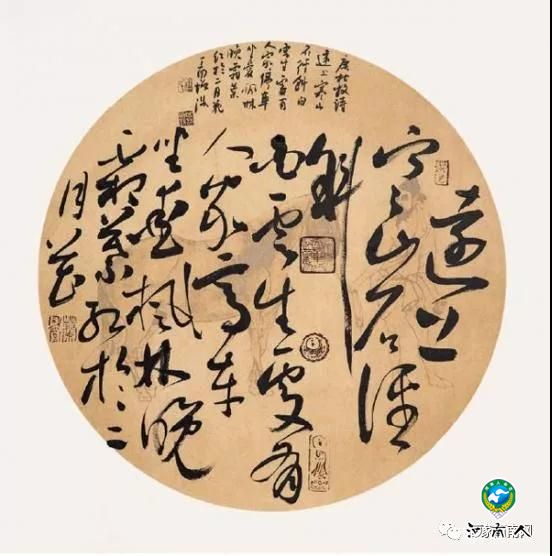 唐杜牧詩
遠上寒山
石径斜白
雲生處有
人家停車
坐愛楓林
晚霜葉
红於二月花
遠上
寒山石径
斜
白雲生處有
人家停車
坐愛楓林晚
霜葉红於二
月花
河南人